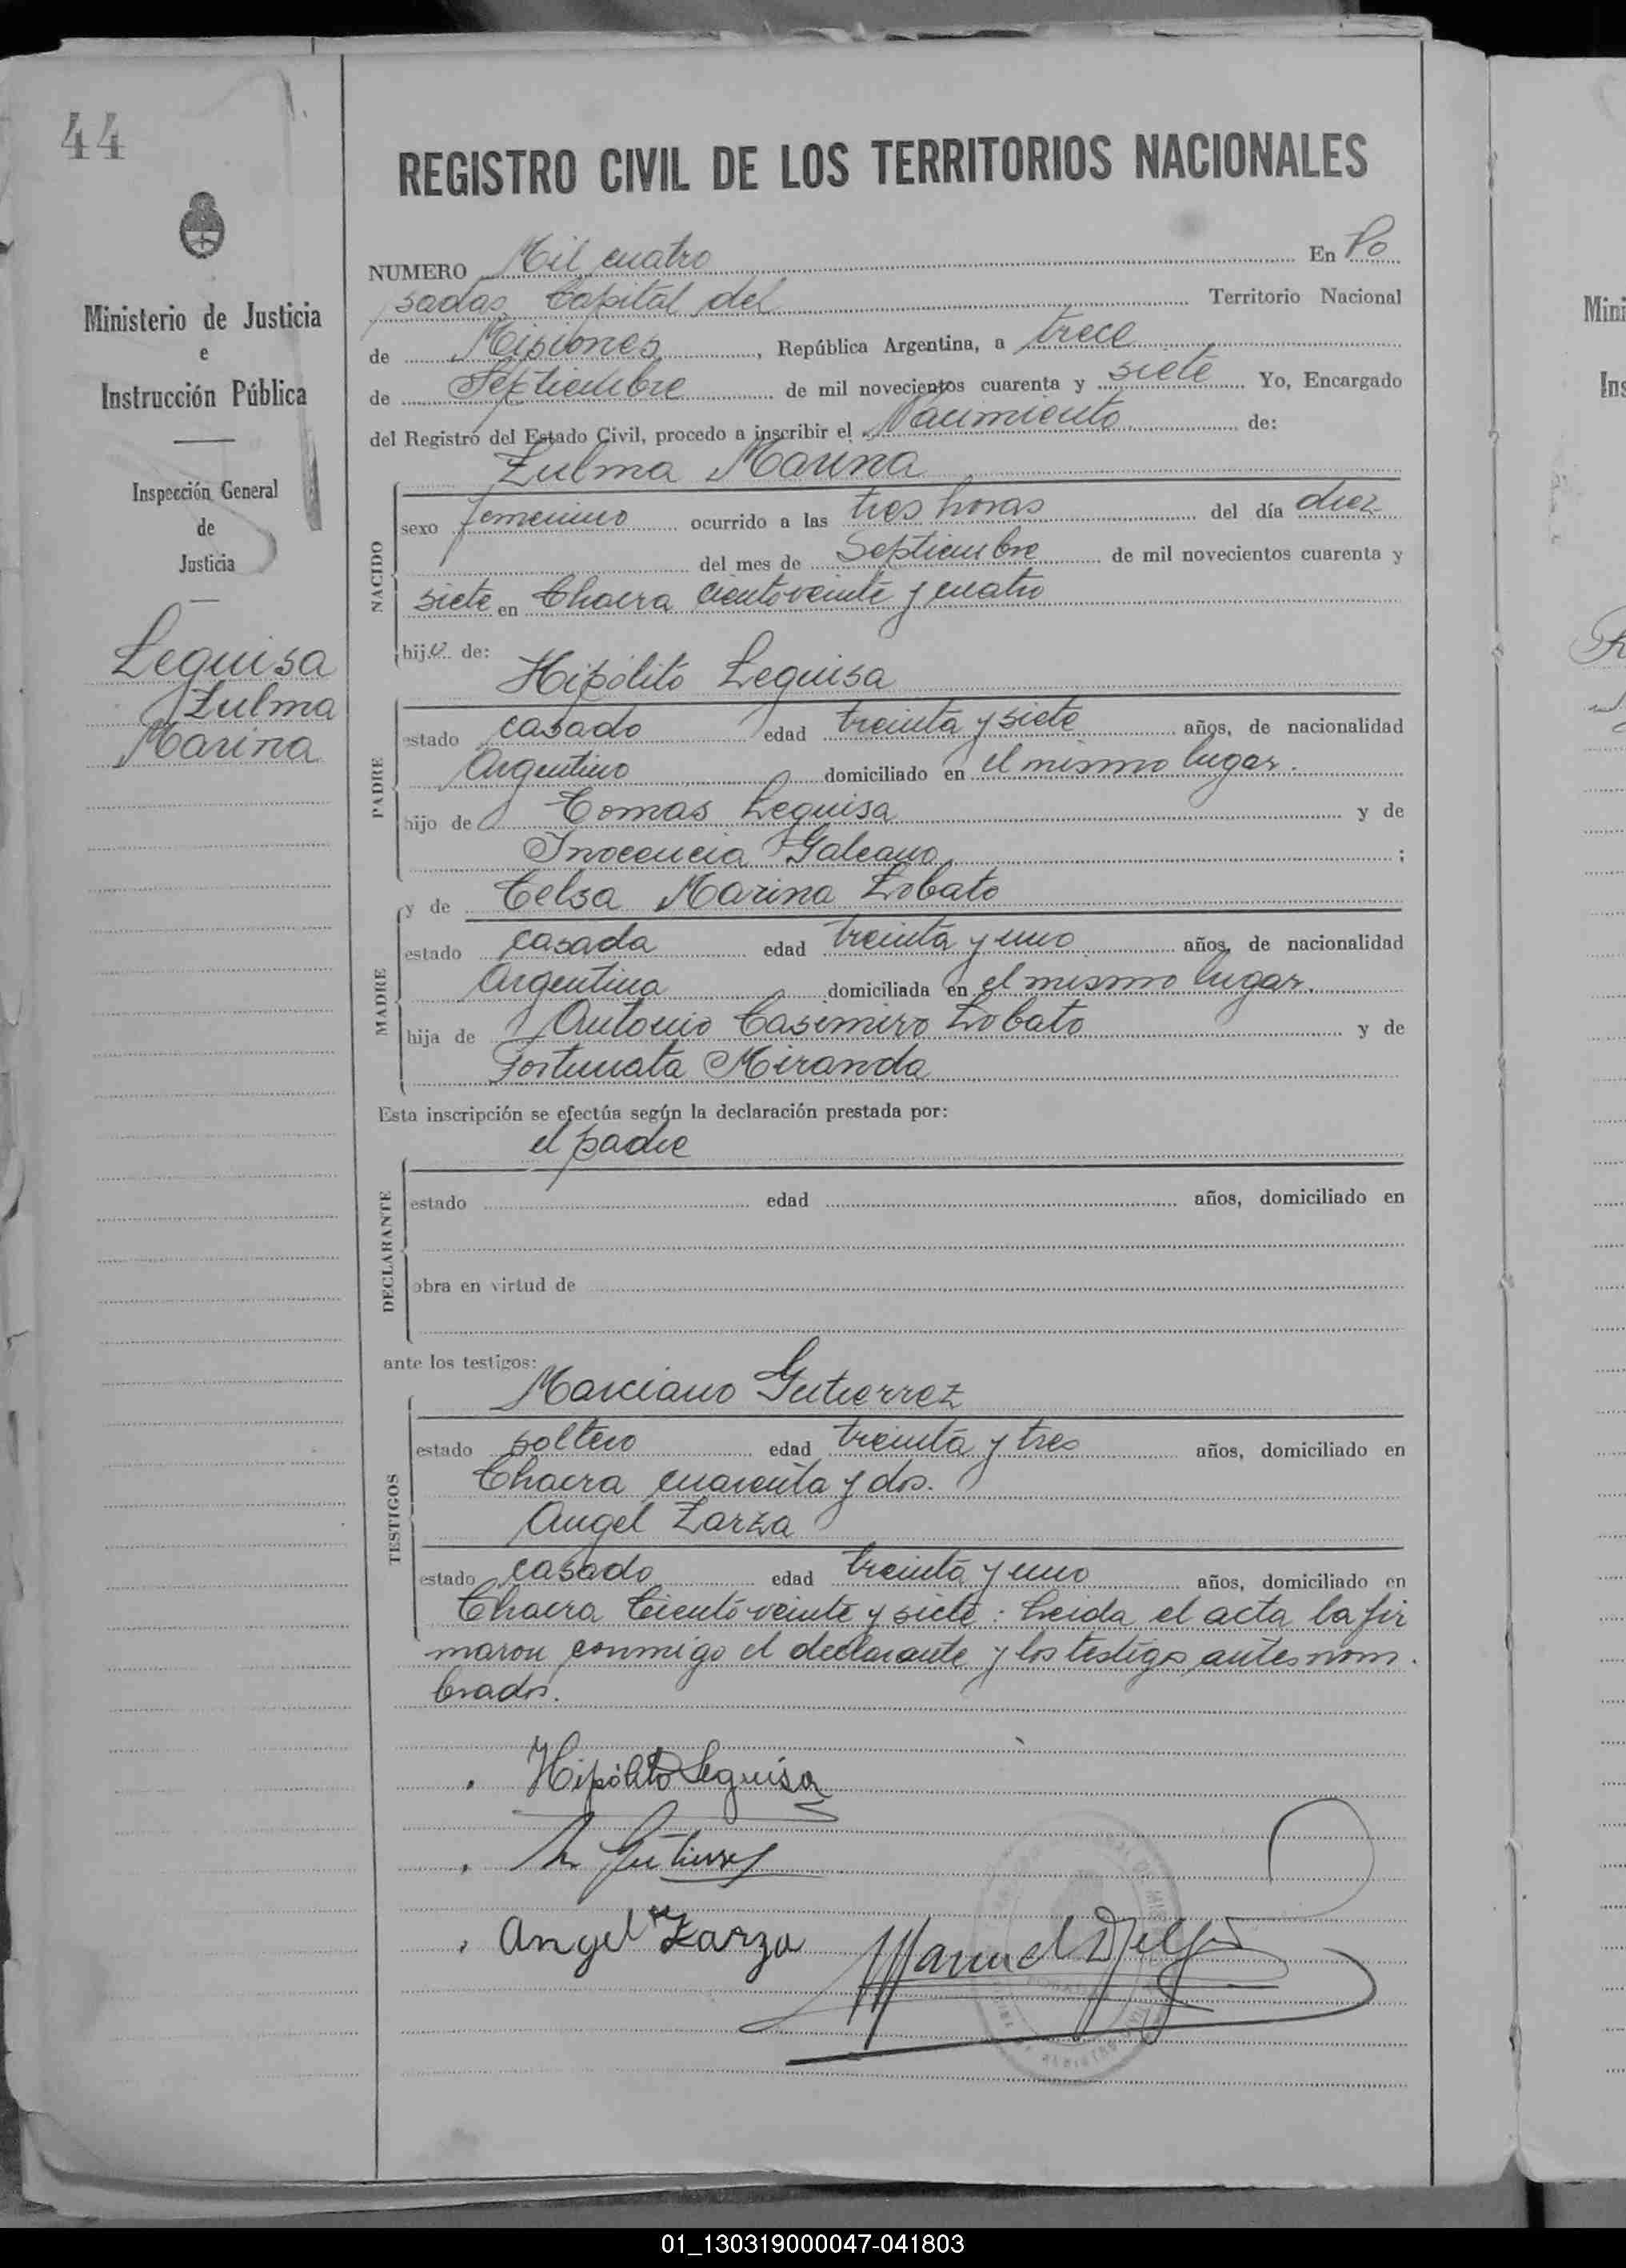 44
Ministerio de Justicia
e
Instrucción Pública
Inspección General
de
Justicia
Leguisa
Zulma
Marina
REGISTRO CIVIL DE LOS TERRITORIOS NACIONALES
NUMERO Mil cuatro En Po
sadas Capital del Territorio Nacional
de Misiones, República Argentina, a trece
de Septiembre de mil novecientos cuarenta y siete Yo, Encargado
del Registro del Estado Civil, procedo a inscribir el Nacimiento de:
Zulma Marina
NACIDO
sexo femenino ocurrido a las tres horas del día diez
del mes de Septiembre de mil novecientos cuarenta y
siete en Chacra ciento veinte y cuatro
hija de:
Hipólito Leguisa
PADRE
estado casado edad treinta y siete años, de nacionalidad
Argentino domiciliado en el mismo lugar.
hijo de Tomas Leguisa y de
Inocencia Galeano ;
y de Celsa Marina Lobato
MADRE
estado casada edad treinta y uno años, de nacionalidad
Argentina domiciliada en el mismo lugar.
hija de Antonio Casimiro Lobato y de
Fortunata Miranda
Esta inscripción se efectúa según la declaración prestada por:
el padre
DECLARANTE
estado edad años, domiciliado en
obra en virtud de
ante los testigos:
Marciano Gutierrez
TESTIGOS
estado soltero edad treinta y tres años, domiciliado en
Chacra cuarenta y dos.
Angel Zarza
estado casado edad treinta y uno años, domiciliado en
Chacra Ciento veinte y siete: Leida el acta la fir
maron conmigo el declarante y los testigos antes nom.
brados.
Hipólito Leguisa
M Gutierrez
Angel Zarza
Manuel
Mini
Ins
01_130319000047-041803